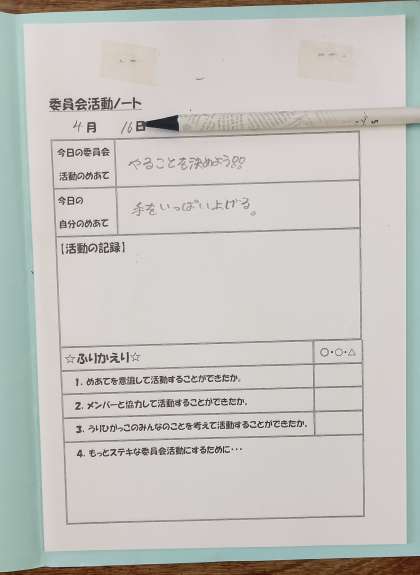 委員会活動ノート
4月 16日
今日の委員会
活動のめあて
やることを決めよう!!
今日の
自分のめあて
手をいっぱい上げる。
【活動の記録】
☆ふりかえり☆
◎・○・△
1. めあてを意識して活動することができたか。
2. メンバーと協力して活動することができたか。
3. うりひがっこのみんなのことを考えて活動することができたか。
4. もっとステキな委員会活動にするために・・・